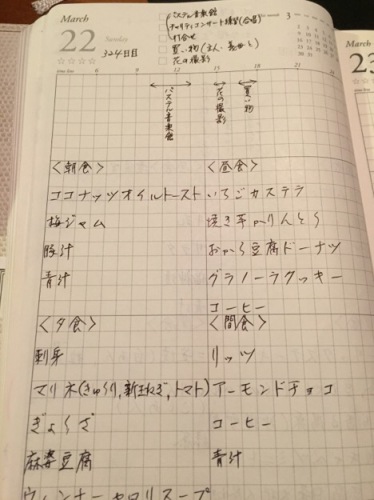 March
22
Sunday
324日目
パステル音楽館
チャリティコンサート練習(合唱)
打合せ
買い物(主人・基郎と)
花の撮影
3
6
9
12
15
18
21
パステル音楽館
花の撮影
買い物
23
<朝食>
ココナッツオイルトースト
梅ジャム
豚汁
青汁
<昼食>
いちごカステラ
焼き芋かりんとう
おから豆腐ドーナツ
グラノーラクッキー
コーヒー
<夕食>
刺身
マリネ(きゅうり,新玉ねぎ,トマト)
ぎょうざ
麻婆豆腐
ウィンナーセロリスープ
<間食>
リッツ
アーモンドチョコ
コーヒー
青汁